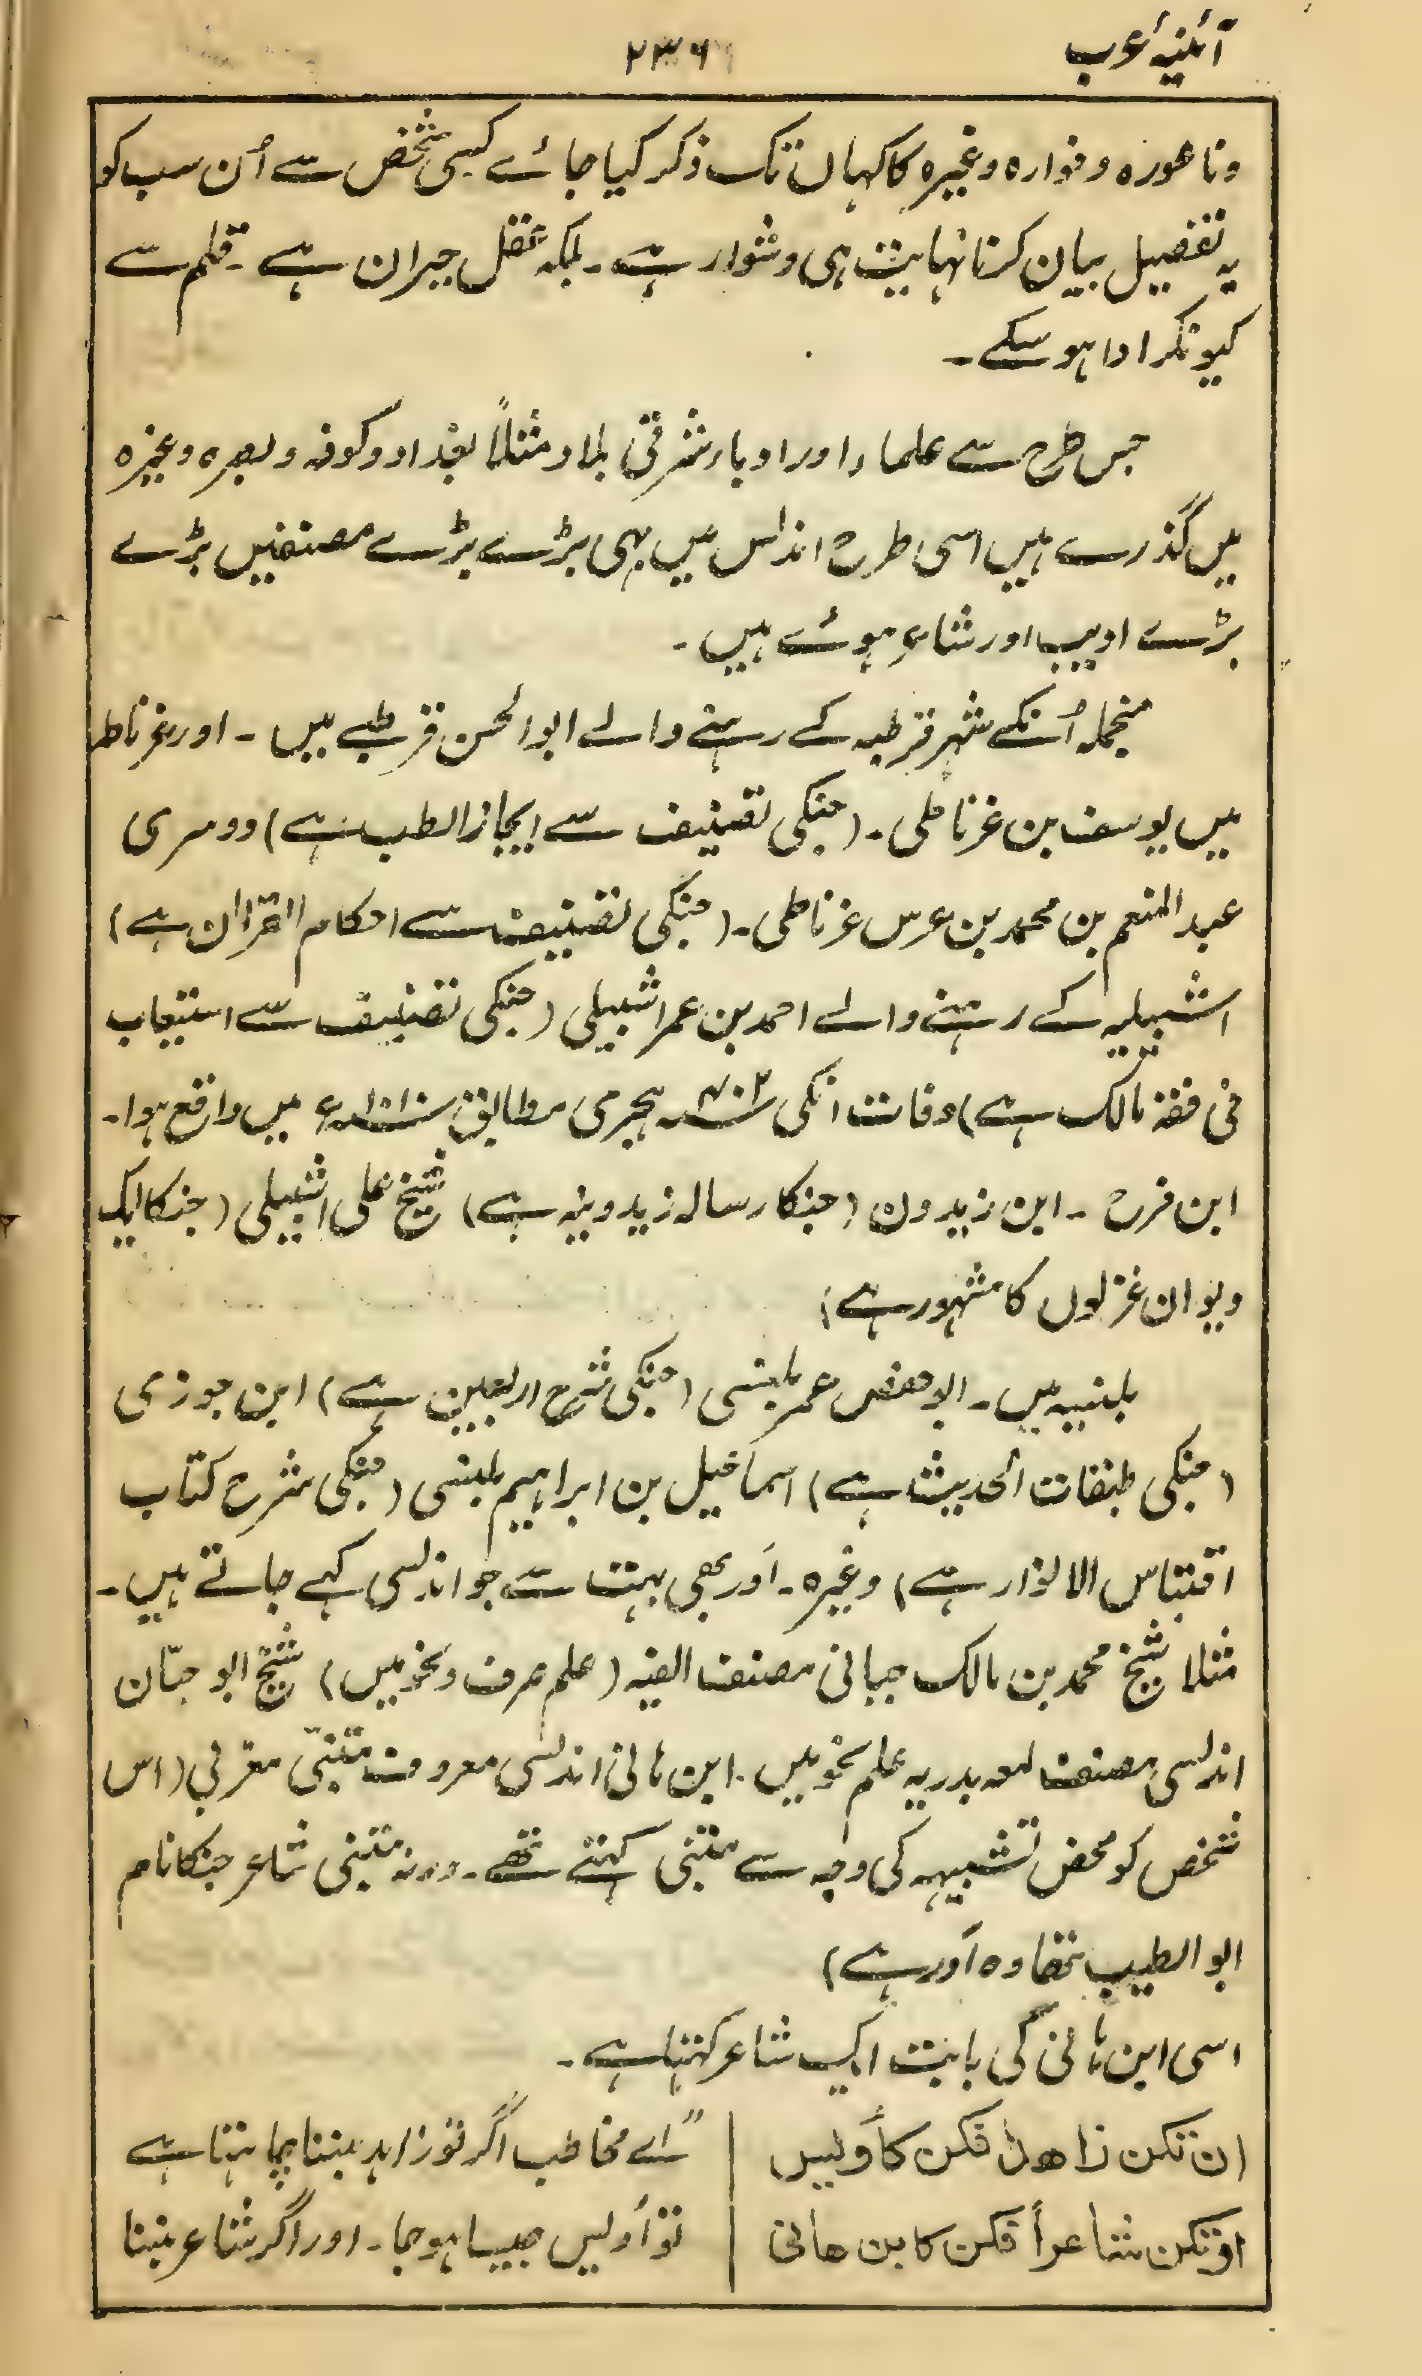 آئنیۂ عرب
۲۳۶
وناعورہ وفوارہ وغیرہ کا کہاں تک ذکر کیا جائے کسی شخص سے اُن سب کو
بہ تفصیل بیان کرنا نہایت ہی دشوار ہے ۔ بلکہ عقل حیران ہے ۔ قلم سے
کیونکر ادا ہوسکے ۔
جس طرح سے علماء اور ادباء شرقی بلاد مثلاً بغداد و کوفہ و بصرہ وغیرہ
میں گذرے ہیں اسی طرح اندلس میں بہی بڑے بڑے مصنفین بڑے
بڑے ادیب اور شاعر ہوئے ہیں ۔
منجملہ اُنکے شہر قرطبہ کے رہنے والے ابوالحسن قرطبے ہیں ۔ اور غرناطہ
میں یوسف بن غرناطی ۔ (جنکی تصنیف سے ایجاز الطب ہے) دوسری
عبد المنعم بن محمد بن عرس غرناطی ۔ (جنکی تصنیف سے احکام القراان ہے)
اشبیلیہ کے رہنے والے احمد بن عمر اشبیلی (جنکی تصنیف سے استیعاب
فی فقہ مالک ہے) وفات انکی ہجری مطابق میں واقع ہوا ۔
ابن فرح ۔ ابن زیدون (جنکا رسالہ زیدونیہ ہے) شیخ علی اشبیلی (جنکا ایک
دیوان غزلوں کا مشہور ہے)
بلنبیہ میں ۔ ابو حفص عمر بلنسی (جنکی شرح اربعین ہے) ابن جوزی
(جنکی طبقات الحدیث ہے) اسماعیل بن ابراہیم بلنسی (جنکی شرح کتاب
اقتباس الانوار ہے) وغیرہ ۔ اَور بھی بہت سے جو اندلسی کہے جاتے ہیں ۔
مثلا شیخ محمد بن مالک جیانی مصنف الفیہ (علم صرف و نحو میں) شیخ ابو حیّان
اندلسی مصنف لمعہ بدریہ علم نحو میں ۔ ابن ہانی اندلسی معروف متنبّی مغربی (اس
شخص کو محض تشبیہہ کی وجہ سے متنبی کہتے تھے ۔ ورنہ متنبی شاعر جنکا نام
ابو الطیب تھا وہ اَور ہے)
اسی ابن ہانی کی بابت ایک شاعر کہتا ہے ۔
ان تکن زاهدا فکن کأویس
او تکن شاعراً فکن کابن هانی
"اے مخاطب اگر تو زاہد بننا چاہتا ہے
تو اُویس جیسا ہوجا ۔ اور اگر شاعر بننا